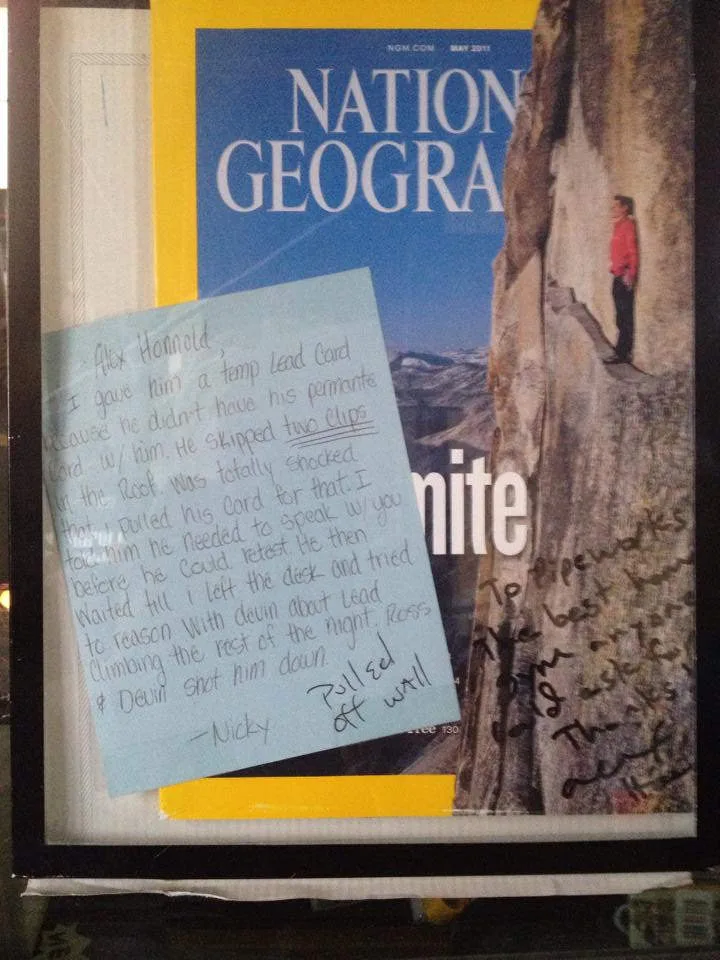 NGM.COM MAY 2011
NATION
GEOGRA
Alex Honnold,
I gave him a temp Lead Card
because he didn't have his permante
Card w/ him. He skipped two clips
in the Roof was totally shocked
that I pulled his card for that. I
told him he needed to speak w/ you
before he could retest. He then
waited till i left the desk and tried
to reason with devin about Lead
Climbing the rest of the night. Ross
& Devin shot him down.
-Nicky
Pulled
off wall
mite
To Pipeworks
The best home
gym anyone
could ask for
Thanks,
free 130